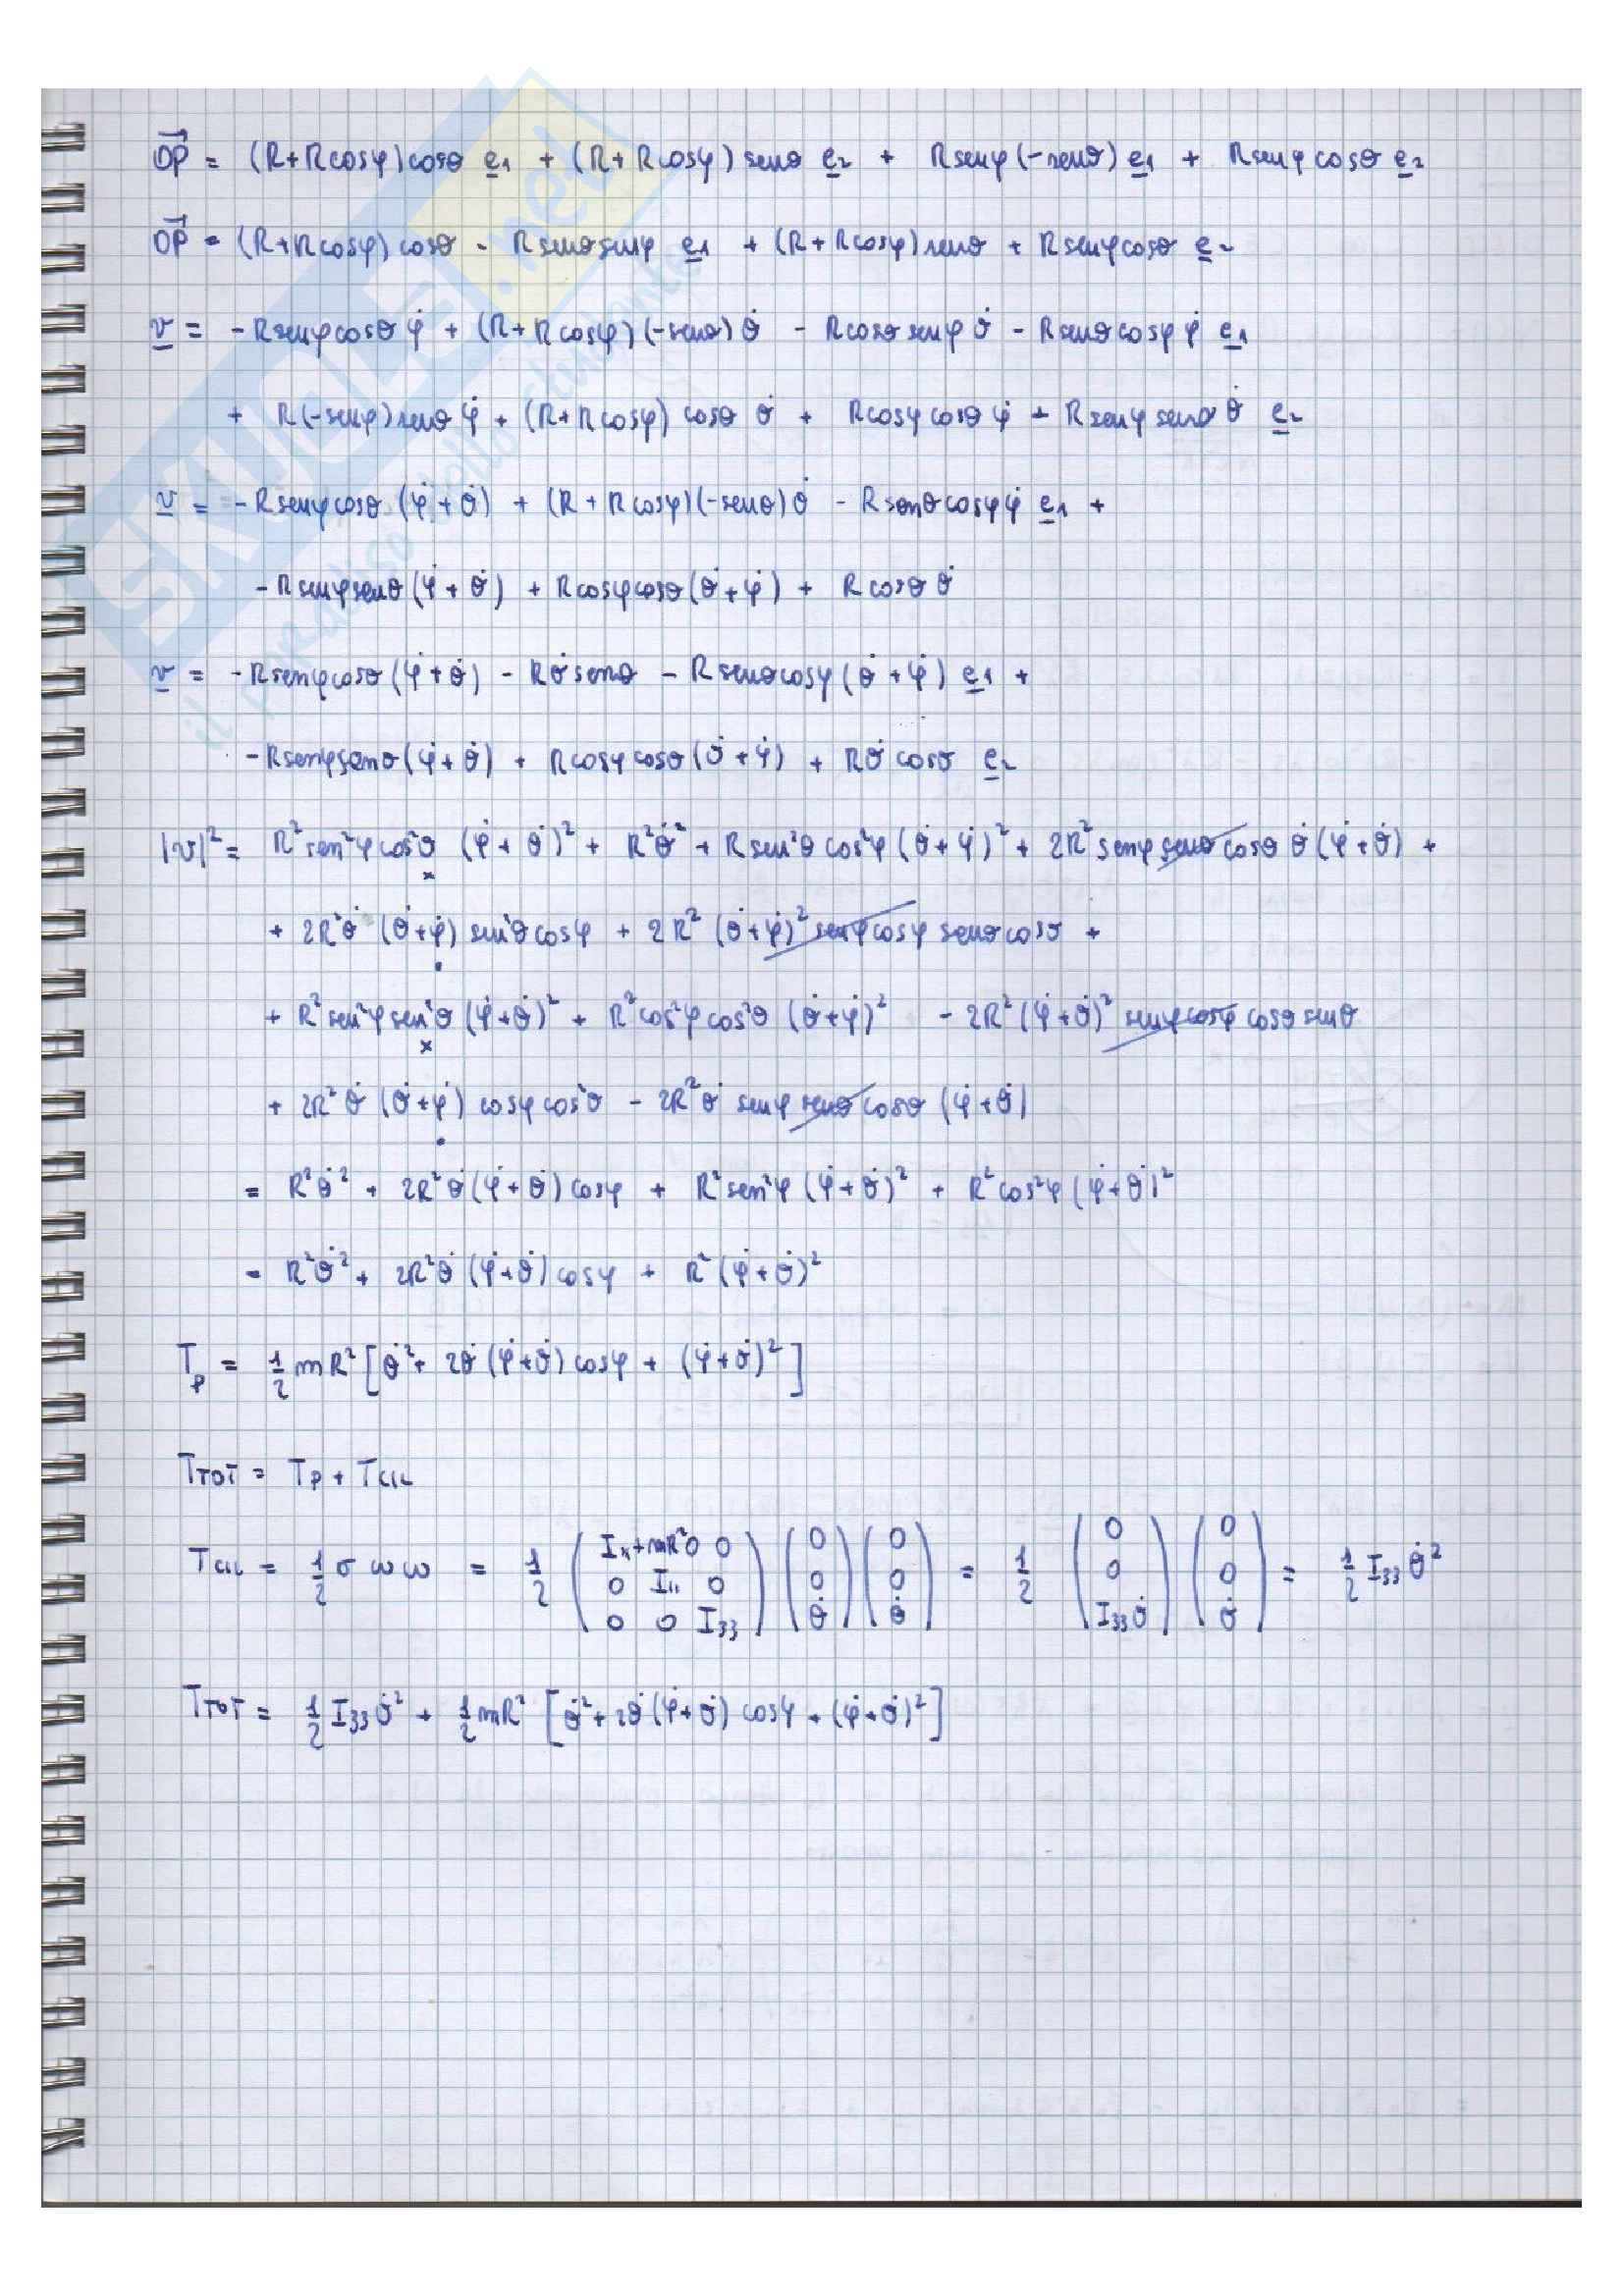 OP = (R+Rcosφ)cosθ e1 + (R+Rcosφ) senθ e2 + Rsenφ(-senθ) e1 + Rsenφ cosθ e2
OP = (R+Rcosφ) cosθ - R senθ senφ e1 + (R+Rcosφ) senθ + R senφ cosθ e2
v = -Rsenφcosθ φ̇ + (R+Rcosφ)(-senθ) θ̇ - Rcosθ senφ θ̇ - Rsenθcosφ φ̇ e1
+ R(-senφ)senθ φ̇ + (R+Rcosφ) cosθ θ̇ + Rcosφ cosθ φ̇ - R senφ senθ θ̇ e2
v = -Rsenφcosθ (φ̇+θ̇) + (R+Rcosφ)(-senθ)θ̇ - Rsenθcosφ φ̇ e1 +
-Rsenφsenθ(φ̇+θ̇) + Rcosφcosθ(θ̇+φ̇) + Rcosθ θ̇
v = -Rsenφcosθ(φ̇+θ̇) - Rθ̇senθ - Rsenθcosφ(θ̇+φ̇) e1 +
-Rsenφsenθ(φ̇+θ̇) + Rcosφcosθ(θ̇+φ̇) + Rθ̇ cosθ e2
|v|² = R²sen²φcos²θ (φ̇+θ̇)² + R²θ̇² + Rsen²θ cos²φ(θ̇+φ̇)² + 2R² senφ senθ cosθ θ̇(φ̇+θ̇) +
+ 2R²θ̇ (θ̇+φ̇) sin²θcosφ + 2R² (θ̇+φ̇)² senφcosφ senθcosθ +
+ R²sen²φsen²θ(φ̇+θ̇)² + R²cos²φcos²θ (θ̇+φ̇)² - 2R²(φ̇+θ̇)² senφcosφ cosθ senθ
+ 2R²θ̇ (θ̇+φ̇) cosφcos²θ - 2R²θ̇ senφ senθ cosθ (φ̇+θ̇)
= R²θ̇² + 2R²θ̇(φ̇+θ̇)cosφ + R²sen²φ(φ̇+θ̇)² + R²cos²φ(φ̇+θ̇)²
= R²θ̇² + 2R²θ̇(φ̇+θ̇)cosφ + R²(φ̇+θ̇)²
Tp = 1/2 mR² [θ̇² + 2θ̇(φ̇+θ̇)cosφ + (φ̇+θ̇)²]
TTOT = Tp + TCIL
TCIL = 1/2 σ ω ω = 1/2 (I11+mR² 0 0; 0 I11 0; 0 0 I33) (0; 0; θ̇) (0; 0; θ̇) = 1/2 (0; 0; I33θ̇) (0; 0; θ̇) = 1/2 I33θ̇²
TTOT = 1/2 I33θ̇² + 1/2 mR² [θ̇² + 2θ̇(φ̇+θ̇) cosφ + (φ̇+θ̇)²]
SKUOLA.net